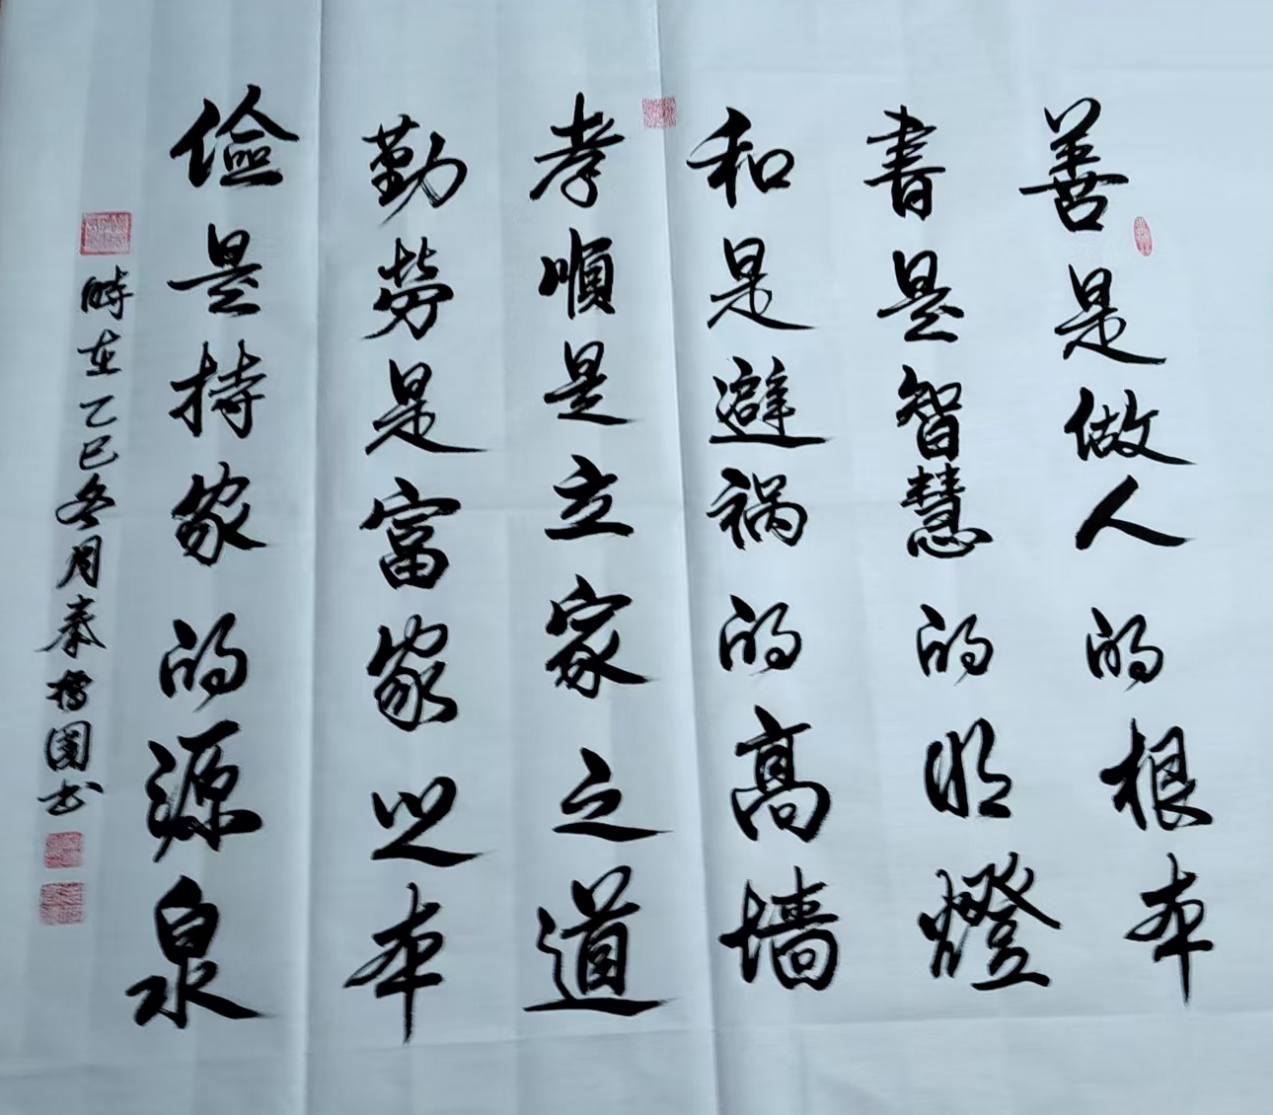 善是做人的根本
書是智慧的明燈
和是避禍的高墻
孝順是立家之道
勤勞是富家之本
儉是持家的源泉
時在乙巳冬月秦 國书